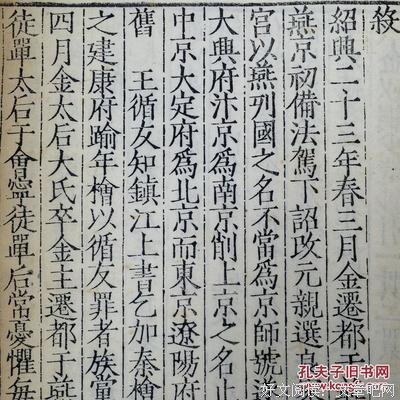 敍
紹興二十三年春三月金遷都于
燕京初備法駕下詔改元親選良
宮以燕列國之名不當爲京師號
大興府汴京爲南京削上京之名止
中京大定府爲北京而東京遼陽府
舊　王循友知鎮江上書乞加秦檜
之建康府踰年檜以循友罪者族黨
四月金太后大氏卒金主遷都于燕
徒單太后于會寧徒單后常憂懼每
孔夫子旧书网